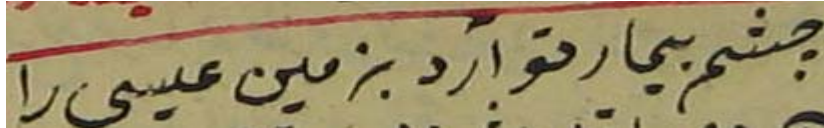 چشم بیمار تو آرد بزمین عیسی را